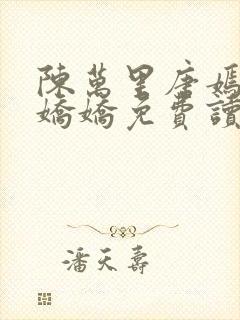 陳萬里唐嫣
嬌嬌免費讀
潘天壽